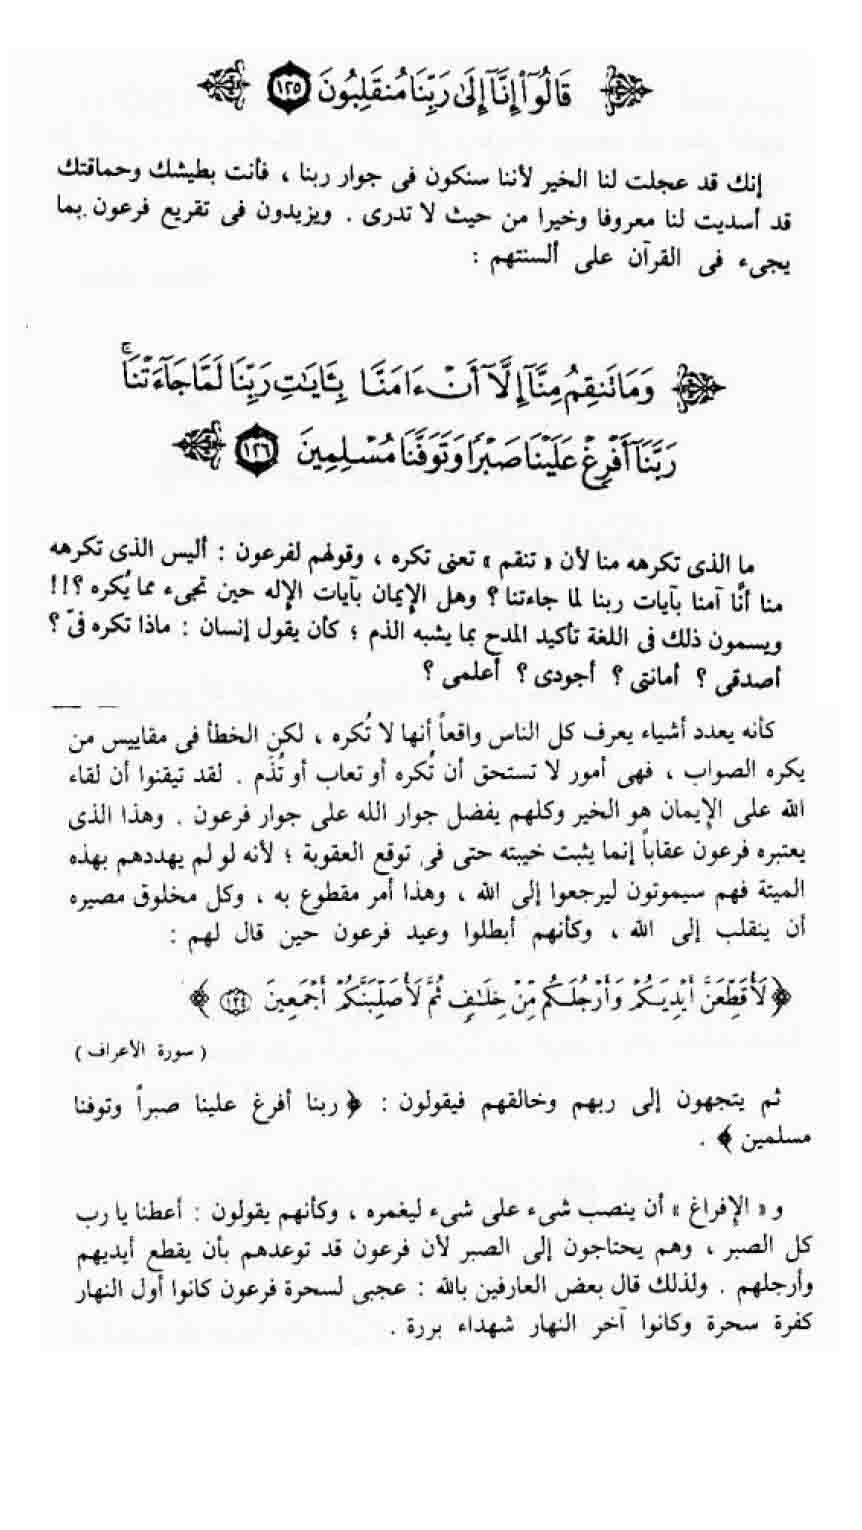 قَالُوٓا۟ إِنَّآ إِلَىٰ رَبِّنَا مُنقَلِبُونَ ١٢٥
إنك قد عجلت لنا الخير لأننا سنكون فى جوار ربنا ، فأنت بطيشك وحماقتك
قد أسديت لنا معروفا وخيرا من حيث لا تدرى . ويزيدون فى تقريع فرعون بما
يجىء فى القرآن على ألسنتهم :
وَمَا تَنقِمُ مِنَّآ إِلَّآ أَنْ ءَامَنَّا بِـَٔايَـٰتِ رَبِّنَا لَمَّا جَآءَتْنَا ۚ
رَبَّنَآ أَفْرِغْ عَلَيْنَا صَبْرًا وَتَوَفَّنَا مُسْلِمِينَ ١٢٦
ما الذى تكرهه منا لأن « تنقم » تعنى تكره ، وقولهم لفرعون : أليس الذى تكرهه
منا أنَّا آمنا بآيات ربنا لما جاءتنا ؟ وهل الإيمان بآيات الإله حين تجىء مما يُكره ؟!!
ويسمون ذلك فى اللغة تأكيد المدح بما يشبه الذم ؛ كأن يقول إنسان : ماذا تكره فىّ ؟
أصدقى ؟ أمانتى ؟ أجودى ؟ أعلمى ؟
كأنه يعدد أشياء يعرف كل الناس واقعاً أنها لا تُكره ، لكن الخطأ فى مقاييس من
يكره الصواب ، فهى أمور لا تستحق أن تُكره أو تعاب أو تُذَم . لقد تيقنوا أن لقاء
الله على الإيمان هو الخير وكلهم يفضل جوار الله على جوار فرعون . وهذا الذى
يعتبره فرعون عقاباً إنما يثبت خيبته حتى فى توقع العقوبة ؛ لأنه لو لم يهددهم بهذه
الميتة فهم سيموتون ليرجعوا إلى الله ، وهذا أمر مقطوع به ، وكل مخلوق مصيره
أن ينقلب إلى الله ، وكأنهم أبطلوا وعيد فرعون حين قال لهم :
﴿ لَأُقَطِّعَنَّ أَيْدِيَكُمْ وَأَرْجُلَكُم مِّنْ خِلَـٰفٍ ثُمَّ لَأُصَلِّبَنَّكُمْ أَجْمَعِينَ ١٢٤ ﴾
( سورة الأعراف )
ثم يتجهون إلى ربهم وخالقهم فيقولون : ﴿ ربنا أفرغ علينا صبراً وتوفنا
مسلمين ﴾ .
و « الإفراغ » أن ينصب شىء على شىء ليغمره ، وكأنهم يقولون : أعطنا يا رب
كل الصبر ، وهم يحتاجون إلى الصبر لأن فرعون قد توعدهم بأن يقطع أيديهم
وأرجلهم . ولذلك قال بعض العارفين بالله : عجبى لسحرة فرعون كانوا أول النهار
كفرة سحرة وكانوا آخر النهار شهداء بررة .